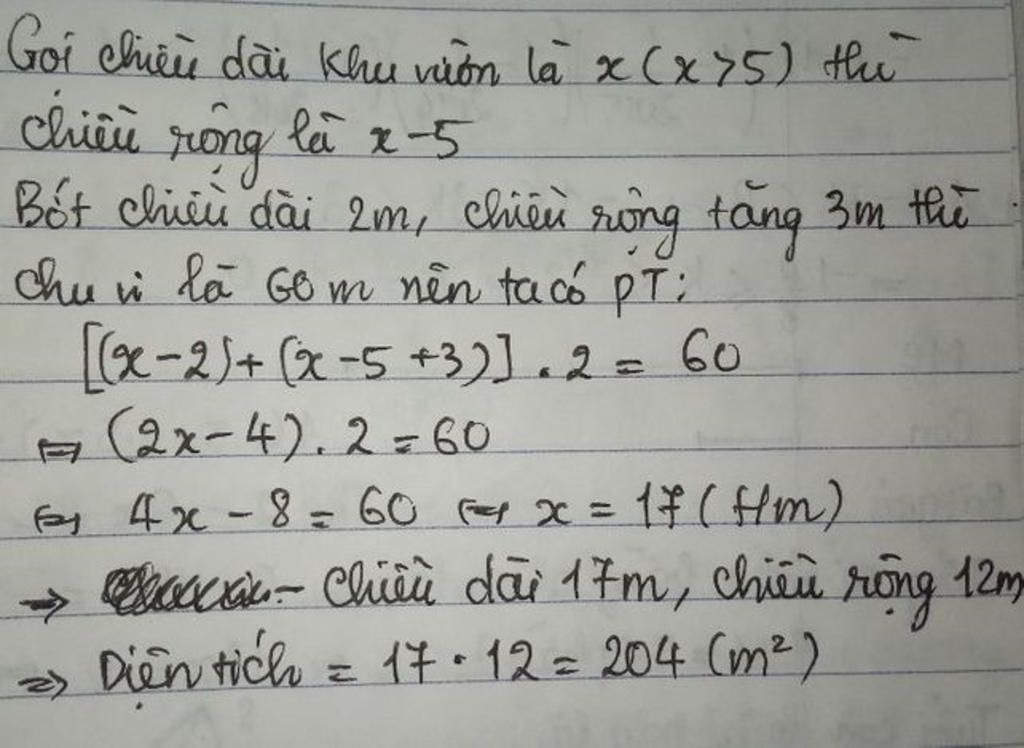 Gọi chiều dài khu vườn là x (x>5) thì
chiều rộng là x-5
Bớt chiều dài 2m, chiều rộng tăng 3m thì
chu vi là 60 m nên ta có PT:
[(x-2)+(x-5+3)].2 = 60
⇔ (2x-4).2=60
⇔ 4x-8=60 ⇔ x=17(t/m)
→ - Chiều dài 17m, chiều rộng 12m
=> Diện tích = 17.12=204 (m²)